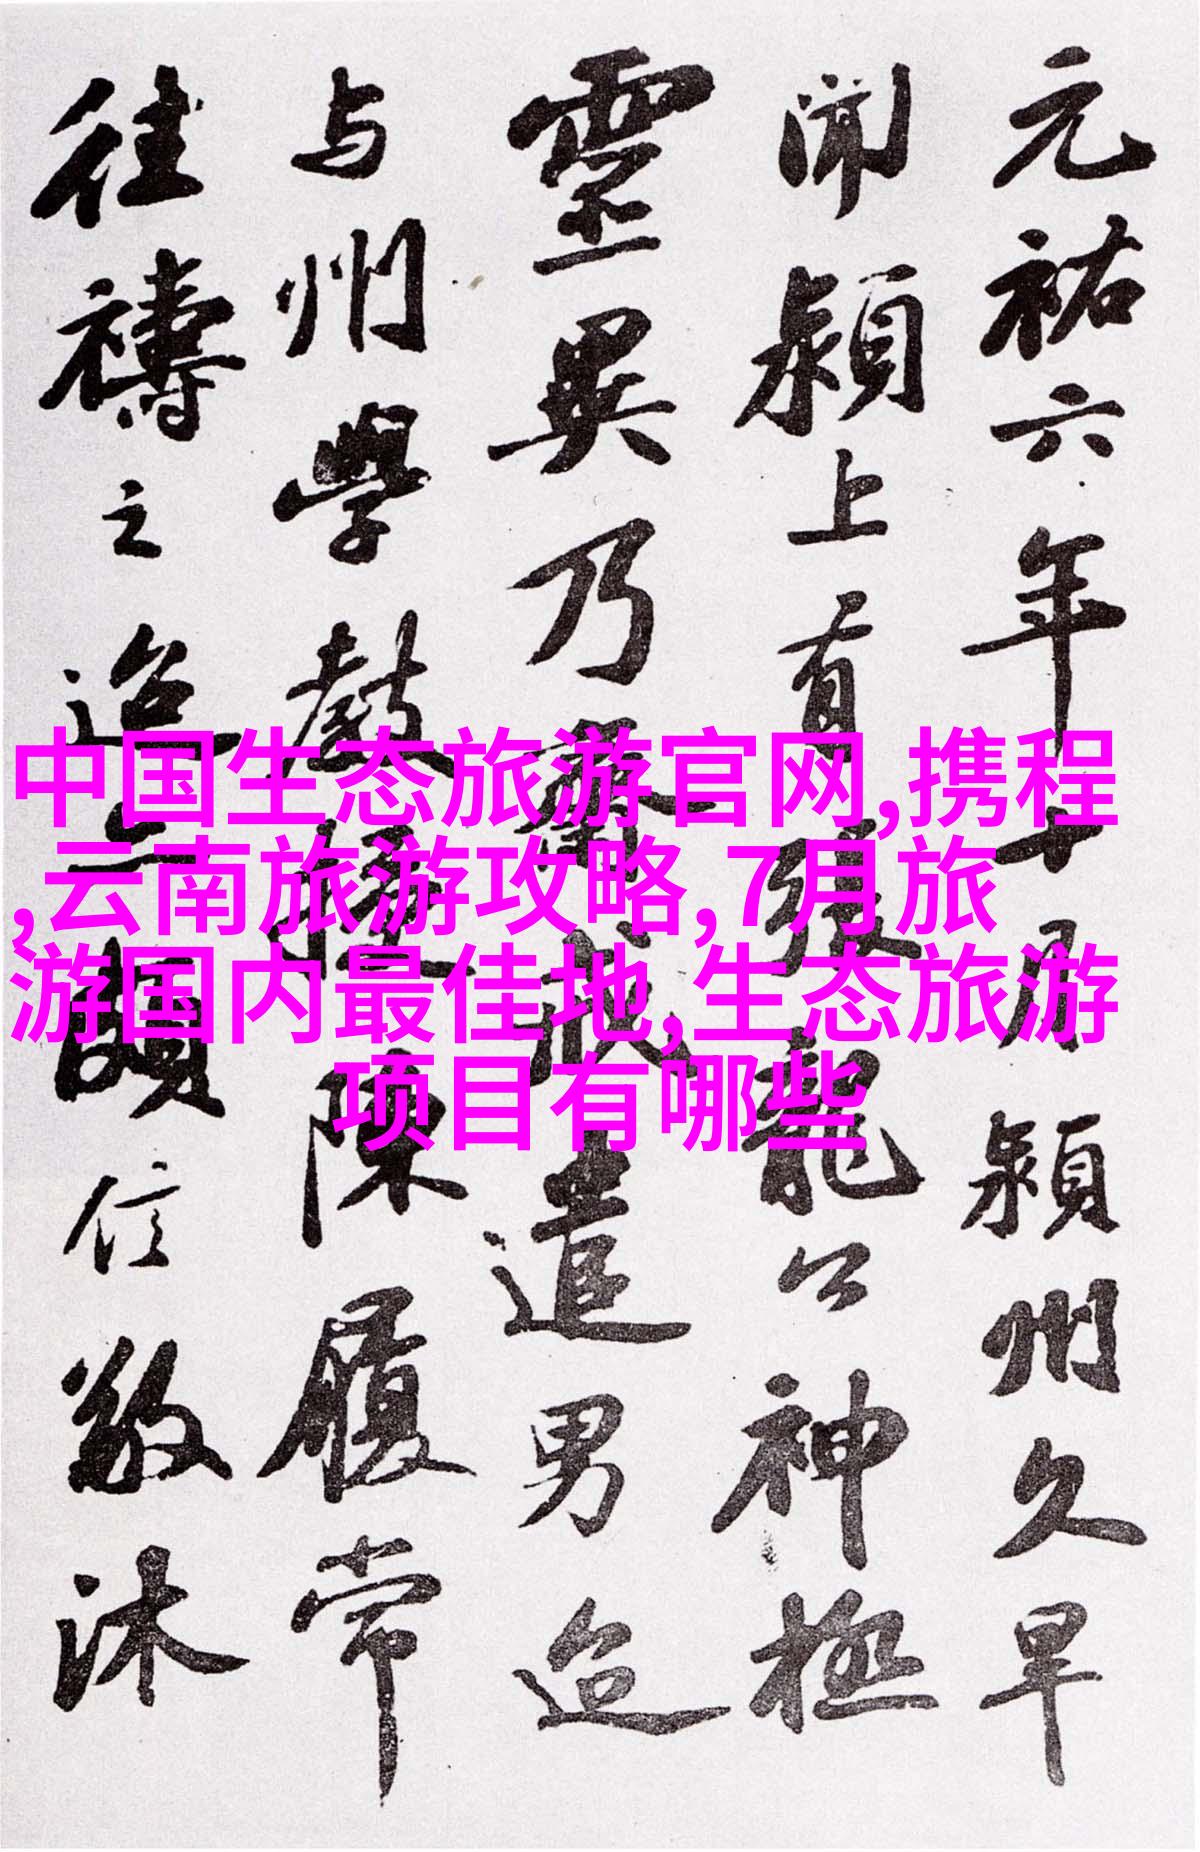 元祐六年十月潁州久旱
聞潁上有張龍公神極
靈異乃齋戒遣男迨
与州學教授陳履常
往禱之迨亦頗信敬沐
中国生态旅游官网,携程
,云南旅游攻略,7月旅
游国内最佳地,生态旅游
项目有哪些